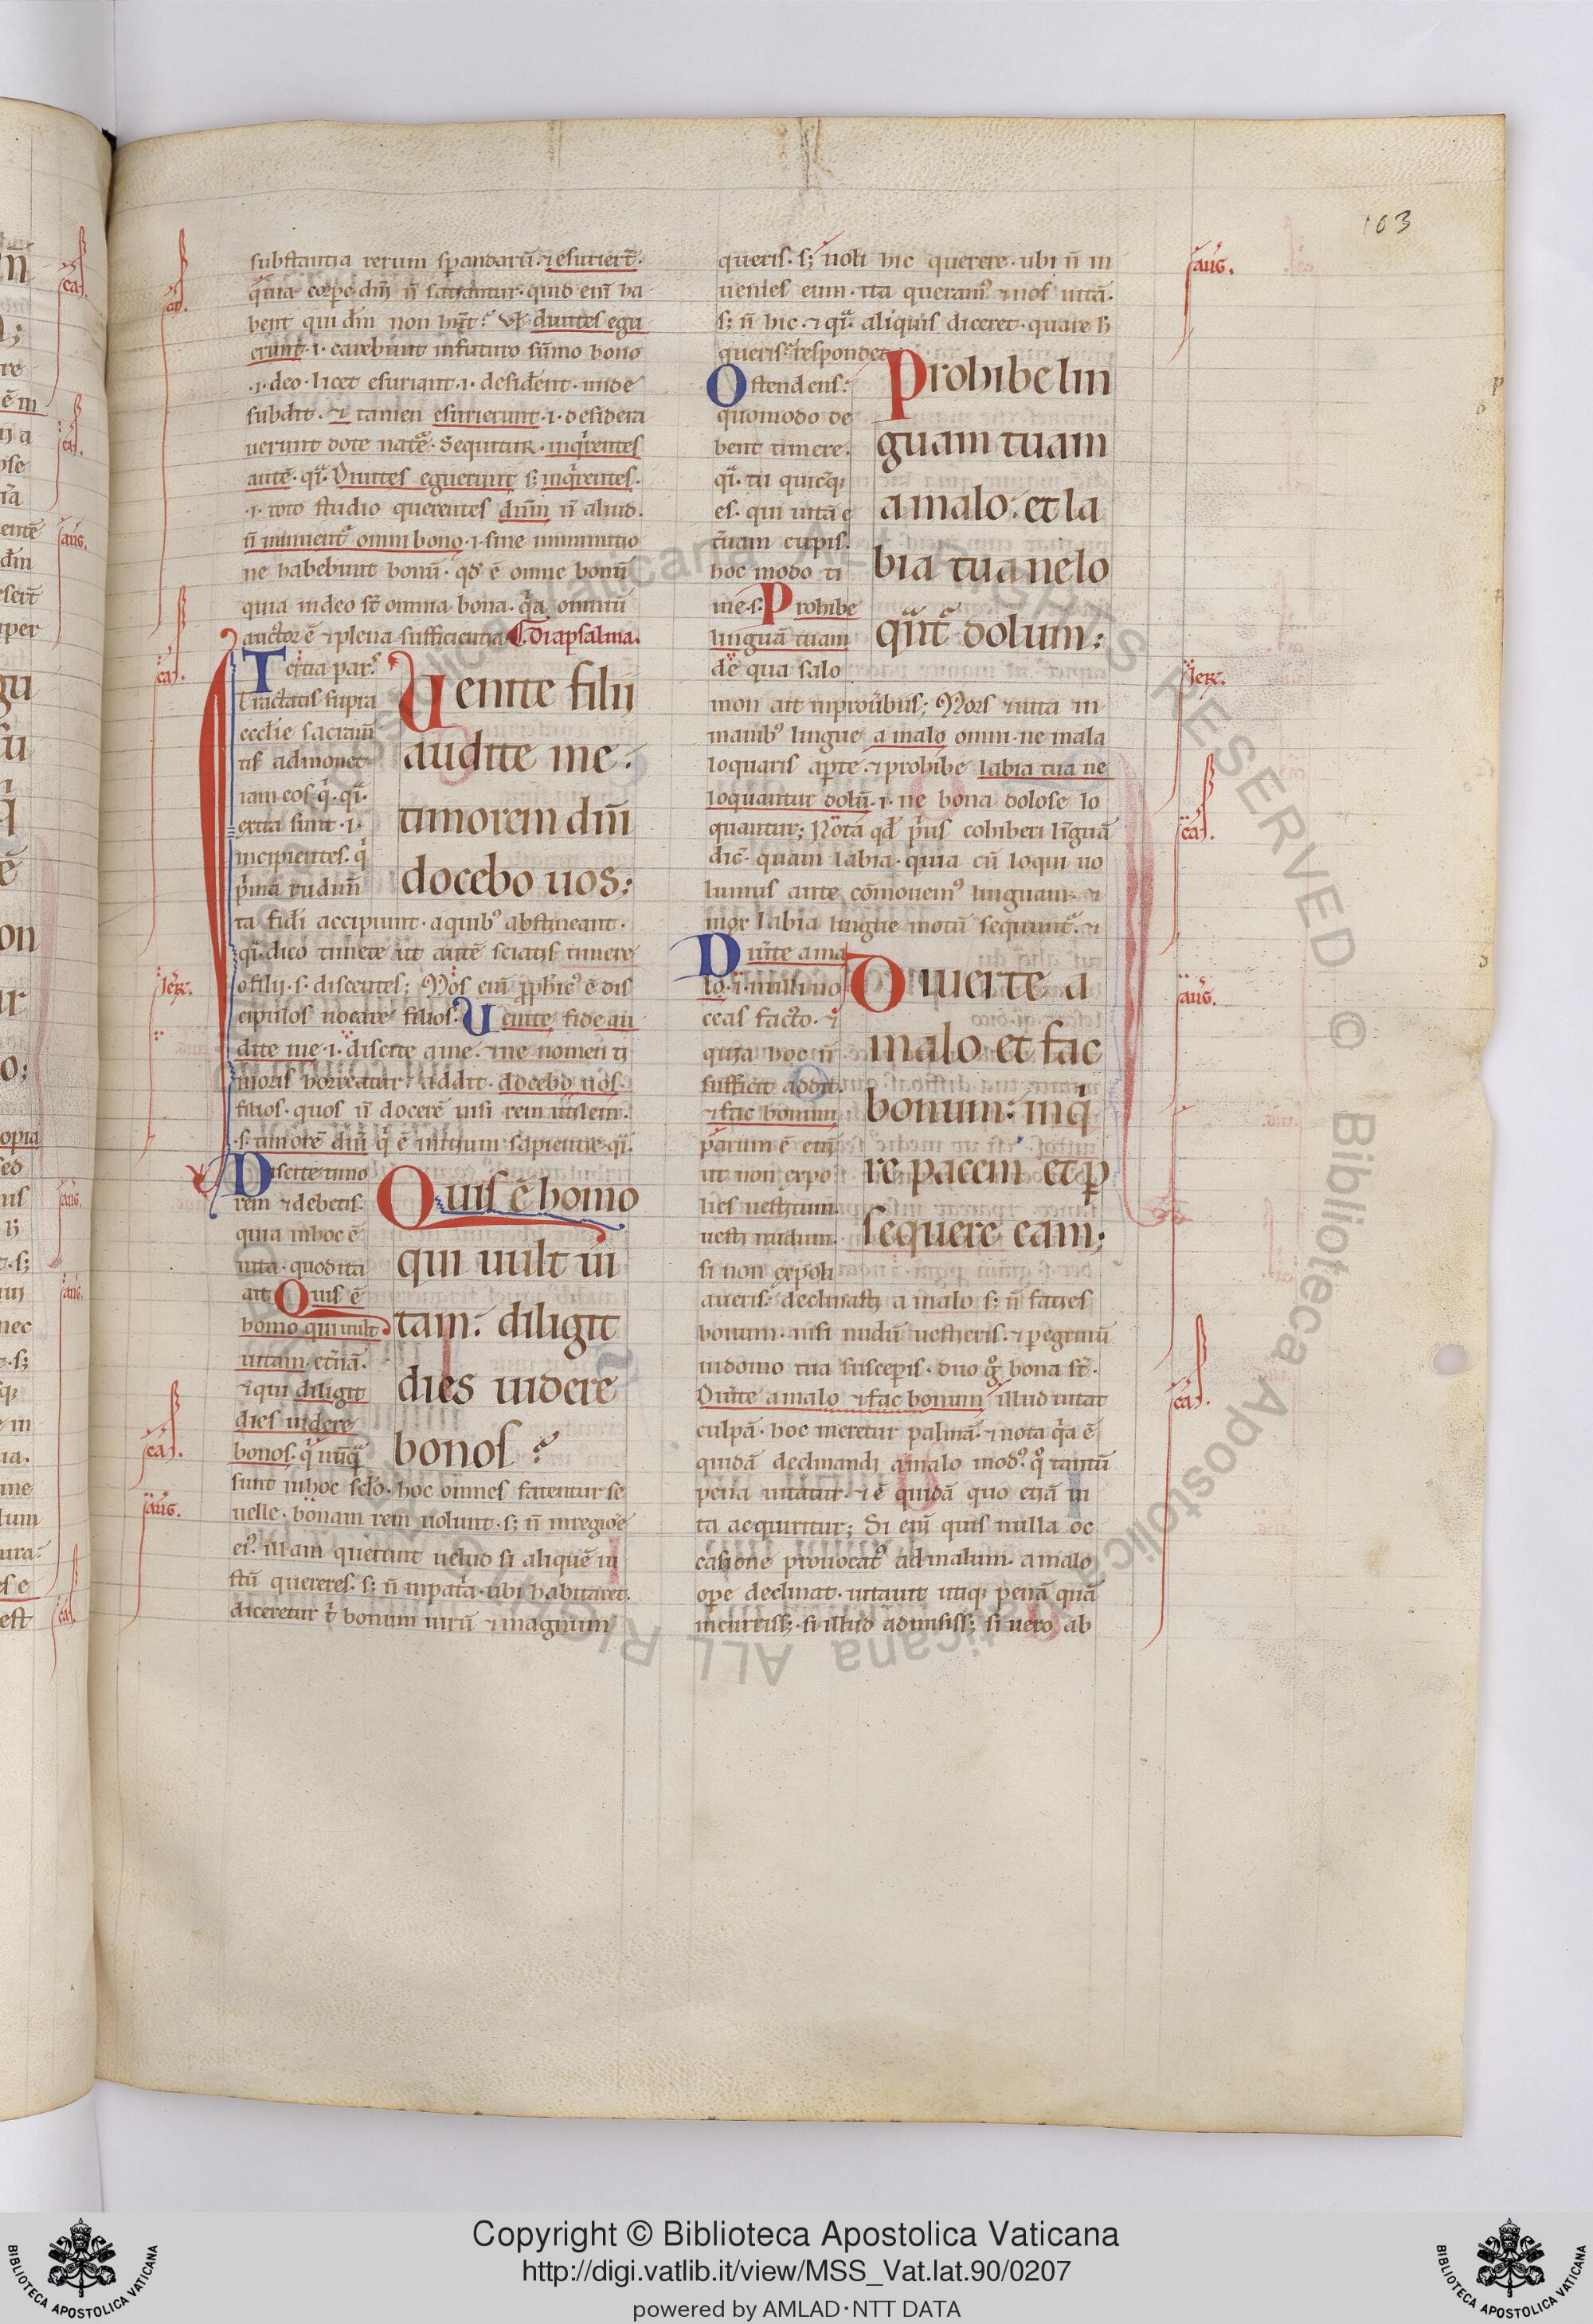 103
substantia rerum sperandarū. ⁊ esurierт̄.
quia corpe dn̄i n̄ satiantur. quid eni ha
bent qui dn̄m non hn̄t? Vl̄ diuites egu
erunt .i. carebunt in futuro sūmo bono
.i. deo. licet esuriant .i. desiderent. unde
subdit. et tamen esurierunt .i. desidera
uerunt dote nat̄e. Sequitur. inqͥrentes
autē. qͣ. Diuites eguerunt s; inqͥrentes.
.i. toto studio querentes dnm̄ n̄ aliud.
n̄ minuent᷑ omni bono .i. sine minutio
ne habebunt bonū. qd̄ ē omne bonū
quia in deo st̄ omnia bona. qͥa omniū
auctor ē ⁊ plena sufficientia. Diapsalma.
Tertia pars.
Tractatis supra
ecclie sacram̄
tis admonet
iam eos qͥ. qͣ.
tercia sunt .i.
incipientes. qͥ
pͥma rudim̄
ta fidei accipiunt. a quibꝰ abstineant.
qͣ. dico timete ut autē sciatis timere
o filii. s. discentes; Mos eni pphīcꝰ ē dis
cipulos uocare filios. Venite fide au
dite me .i. discite a me. ⁊ ne nomen ti
moris horreatur addit. docebo uos.
filios. quos n̄ docerē nisi rem utilem.
.s. timorē dn̄i qͥ ē initium sapientie. qͣ.
Discite timo
rem ⁊ debetis.
quia in hoc ē
uita. quod ita
ait Quis ē
homo qui uult
uitam et̄nā.
⁊ qui diligit
dies uidere
bonos. qͥ nūqͣ
sunt in hoc scl̄o. hoc omnes fatentur se
uelle. bonam rem uolunt. s; n̄ in regiōe
eiꝰ. uitam querunt uelud si aliquē iu
stū quereres. s; n̄ in patͥa. ubi habitaret.
diceretur tͥ bonum uirū ⁊ magnum
Uenite filii
audite me:
timorem dn̄i
docebo uos:
Quis ē homo
qui uult ui
tam: diligit
dies uidere
bonos?
queris. s; noli hic querere. ubi n̄ in
uenies eum. ita queramꝰ ⁊ nos uitā.
s; n̄ hic. ⁊ qͣ. aliquis diceret. quare h̄
queris? respondet
Ostendens.
quomodo de
bent timere.
qͣ. tu quicūqꝫ
es. qui uitā e
t̄nam cupis.
hoc modo ti
me. s. Prohibe
linguā tuam
de qua salo
mon ait in prouͥbiis; Mors ⁊ uita in
manibꝰ lingue a malo omni. ne mala
loquaris apte. ⁊ prohibe labia tua ne
loquantur dolū .i. ne bona dolose lo
quantur; Nota qd̄ pͥus cohiberi linguā
dic̄. quam labia. quia cū loqui uo
lumus ante cōmouemꝰ linguam. ⁊
mox labia lingue motū sequunt᷑. ⁊
Diuͥte a ma
lo .i. nulli no
ceas facto. ⁊
quia hoc n̄
sufficit addit.
⁊ fac bonum
parum ē eni
ut non expo
lies uestitum.
uesti nudum.
si non expoli
aueris. declinasti a malo s; n̄ facies
bonum. nisi nudū uestieris. ⁊ pegrinū
in domo tua susceperis. duo gͦ bona st̄.
Diuͥte a malo ⁊ fac bonum illud uitat
culpā. hoc meretur palmā. ⁊ nota qͥa ē
quidā declinandi a malo modꝰ. qͦ tantū
pena uitatur. ⁊ ē quidā quo etiā ui
ta acquiritur; Si eni quis nulla oc
casione prouocatꝰ ad malum. a malo
ope declinat. uitauit utiqꝫ penā quā
incurriss;. si illud admisiss; si uero ab
Prohibe lin
guam tuam
a malo: et la
bia tua ne lo
qūnt᷑ dolum:
Diuerte a
malo et fac
bonum: inqͥ
re pacem et p
sequere eam:
ca.
ca.
Ier.
ca.
aug.
aug.
Ier.
ca.
aug.
ca.
Copyright © Biblioteca Apostolica Vaticana
http://digi.vatlib.it/view/MSS_Vat.lat.90/0207
powered by AMLAD·NTT DATA
BIBLIOTECA APOSTOLICA VATICANA
BIBLIOTECA APOSTOLICA VATICANA